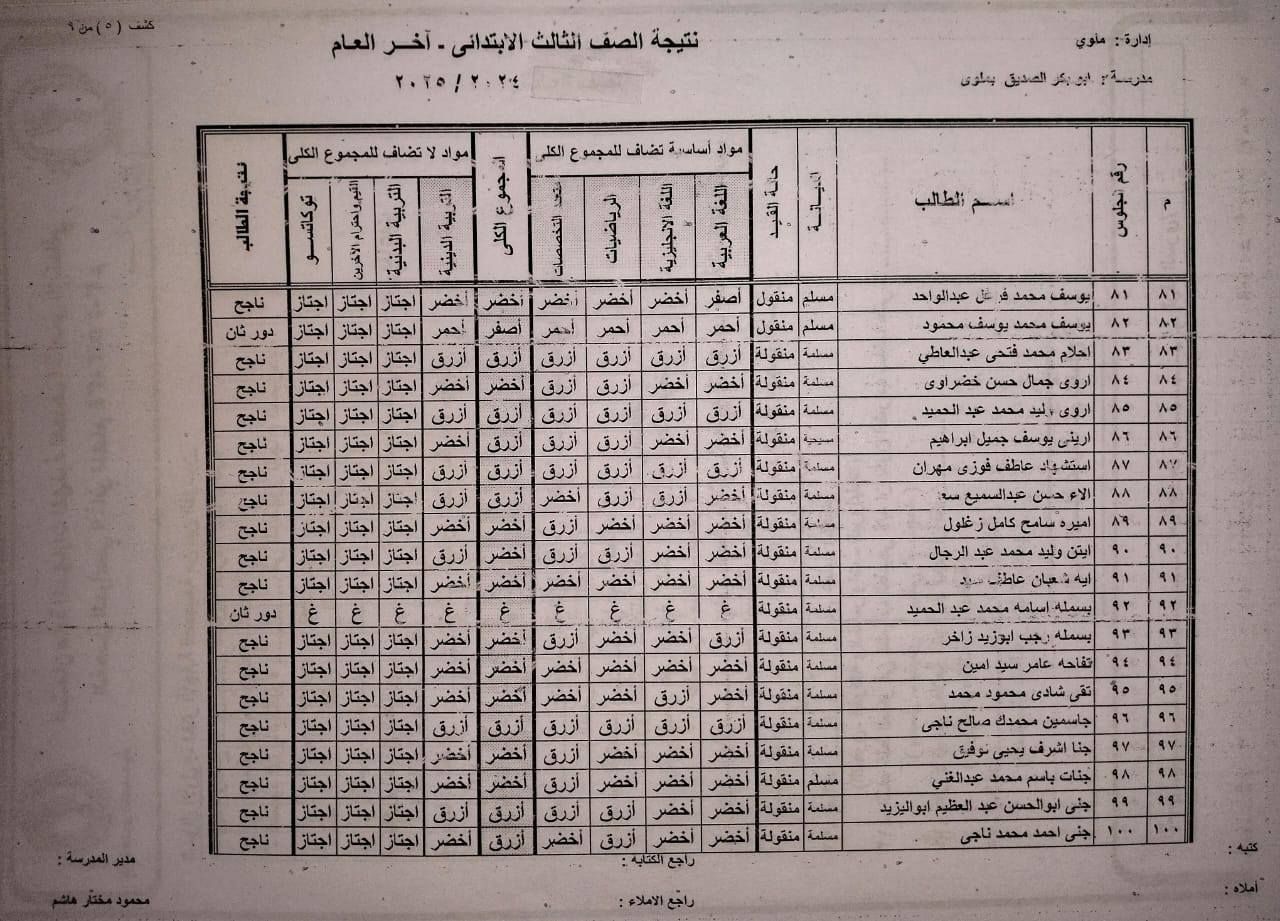 إدارة: ملوي
كشف (٥) من ٩
نتيجة الصف الثالث الابتدائى - آخر العام
مدرسة: ابو بكر الصديق بملوى
٢٠٢٤ / ٢٠٢٥
م | رقم الجلوس | اسم الطالب | الديانة | حالة القيد | مواد أساسية تضاف للمجموع الكلى | المجموع الكلى | مواد لا تضاف للمجموع الكلى | نتيجة الطالب
اللغة العربية | اللغة الانجليزية | الرياضيات | متعدد التخصصات | التربية الدينية | التربية البدنية | القيم واحترام الآخرين | توكاتسو
٨١ | ٨١ | يوسف محمد عبدالواحد | مسلم | منقول | أصفر | أخضر | أخضر | أخضر | أخضر | أخضر | اجتاز | اجتاز | اجتاز | ناجح
٨٢ | ٨٢ | يوسف محمد يوسف محمود | مسلم | منقول | أحمر | أحمر | أحمر | أحمر | أصفر | أحمر | اجتاز | اجتاز | اجتاز | دور ثان
٨٣ | ٨٣ | احلام محمد فتحى عبدالعاطي | مسلمة | منقولة | أزرق | أزرق | أزرق | أزرق | أزرق | أزرق | اجتاز | اجتاز | اجتاز | ناجح
٨٤ | ٨٤ | اروى جمال حسن خضراوى | مسلمة | منقولة | أخضر | أخضر | أخضر | أزرق | أخضر | أخضر | اجتاز | اجتاز | اجتاز | ناجح
٨٥ | ٨٥ | اروى وليد محمد عبد الحميد | مسلمة | منقولة | أزرق | أزرق | أزرق | أزرق | أزرق | أزرق | اجتاز | اجتاز | اجتاز | ناجح
٨٦ | ٨٦ | ارينى يوسف جميل ابراهيم | مسيحية | منقولة | أخضر | أخضر | أزرق | أزرق | أزرق | أخضر | اجتاز | اجتاز | اجتاز | ناجح
٨٧ | ٨٧ | استشهاد عاطف فوزى مهران | مسلمة | منقولة | أزرق | أزرق | أزرق | أزرق | أزرق | أزرق | اجتاز | اجتاز | اجتاز | ناجح
٨٨ | ٨٨ | الاء حسن عبدالسميع | مسلمة | منقولة | أخضر | أزرق | أزرق | أخضر | أزرق | أزرق | اجتاز | اجتاز | اجتاز | ناجح
٨٩ | ٨٩ | اميره سامح كامل زغلول | مسلمة | منقولة | أخضر | أخضر | أخضر | أزرق | أخضر | أخضر | اجتاز | اجتاز | اجتاز | ناجح
٩٠ | ٩٠ | ايتن وليد محمد عبد الرجال | مسلمة | منقولة | أخضر | أخضر | أزرق | أزرق | أخضر | أزرق | اجتاز | اجتاز | اجتاز | ناجح
٩١ | ٩١ | ايه شعبان عاطف سيد | مسلمة | منقولة | أخضر | أخضر | أخضر | أخضر | أخضر | أخضر | اجتاز | اجتاز | اجتاز | ناجح
٩٢ | ٩٢ | بسمله اسامه محمد عبد الحميد | مسلمة | منقولة | غ | غ | غ | غ | غ | غ | غ | غ | غ | دور ثان
٩٣ | ٩٣ | بسمله رجب ابوزيد زاخر | مسلمة | منقولة | أزرق | أخضر | أخضر | أزرق | أخضر | أخضر | اجتاز | اجتاز | اجتاز | ناجح
٩٤ | ٩٤ | تفاحه عامر سيد امين | مسلمة | منقولة | أخضر | أخضر | أخضر | أخضر | أخضر | أخضر | اجتاز | اجتاز | اجتاز | ناجح
٩٥ | ٩٥ | تقى شادى محمود محمد | مسلمة | منقولة | أخضر | أزرق | أخضر | أخضر | أخضر | أخضر | اجتاز | اجتاز | اجتاز | ناجح
٩٦ | ٩٦ | جاسمين محمدك صالح ناجى | مسلمة | منقولة | أزرق | أزرق | أزرق | أزرق | أزرق | أزرق | اجتاز | اجتاز | اجتاز | ناجح
٩٧ | ٩٧ | جنا اشرف يحيى توفيق | مسلمة | منقولة | أخضر | أخضر | أخضر | أزرق | أخضر | أخضر | اجتاز | اجتاز | اجتاز | ناجح
٩٨ | ٩٨ | جنات باسم محمد عبدالغني | مسلم | منقولة | أخضر | أخضر | أخضر | أخضر | أخضر | أخضر | اجتاز | اجتاز | اجتاز | ناجح
٩٩ | ٩٩ | جنى ابوالحسن عبد العظيم ابواليزيد | مسلمة | منقولة | أخضر | أخضر | أزرق | أزرق | أزرق | أزرق | اجتاز | اجتاز | اجتاز | ناجح
١٠٠ | ١٠٠ | جنى احمد محمد ناجى | مسلمة | منقولة | أخضر | أخضر | أزرق | أخضر | أزرق | أخضر | اجتاز | اجتاز | اجتاز | ناجح
كتبه:
راجع الكتابه :
مدير المدرسة :
أملاه:
راجع الاملاء :
محمود مختار هاشم